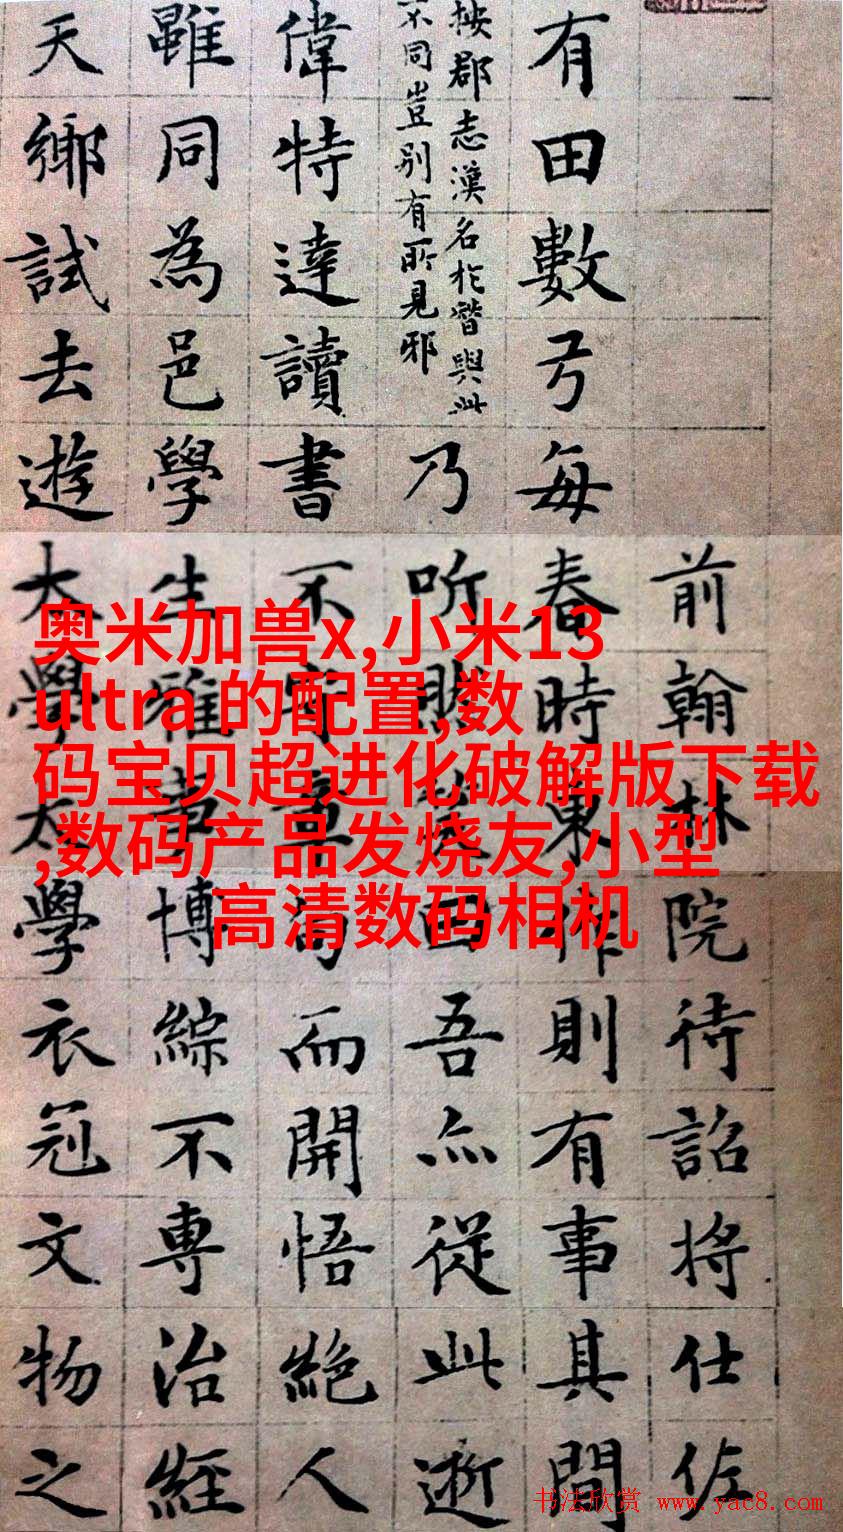 前翰林院待詔將仕佐
有田數弓每春時東作則有事其間
按郡志漢名於與此
不同豈別有所見邪
乃听吾亦從此逝
偉特達讀書不守章句而開悟絕人
雖同為邑學生雅博綜不專治經
天鄉試去遊太學太學衣冠文物之
奥米加兽x,小米13
ultra 的配置,数
码宝贝超进化破解版下载
,数码产品发烧友,小型
高清数码相机
书法欣赏 www.yac8.com